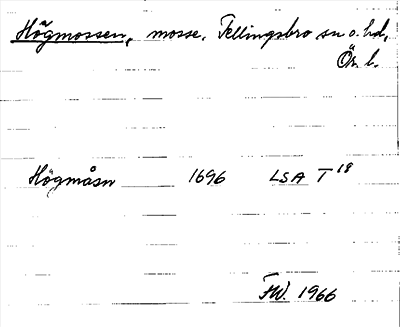 Högmossen, mosse. Fellingsbro sn o. hd,
Ör. l.
Högmåsn 1696 LSA T 18
FW. 1966